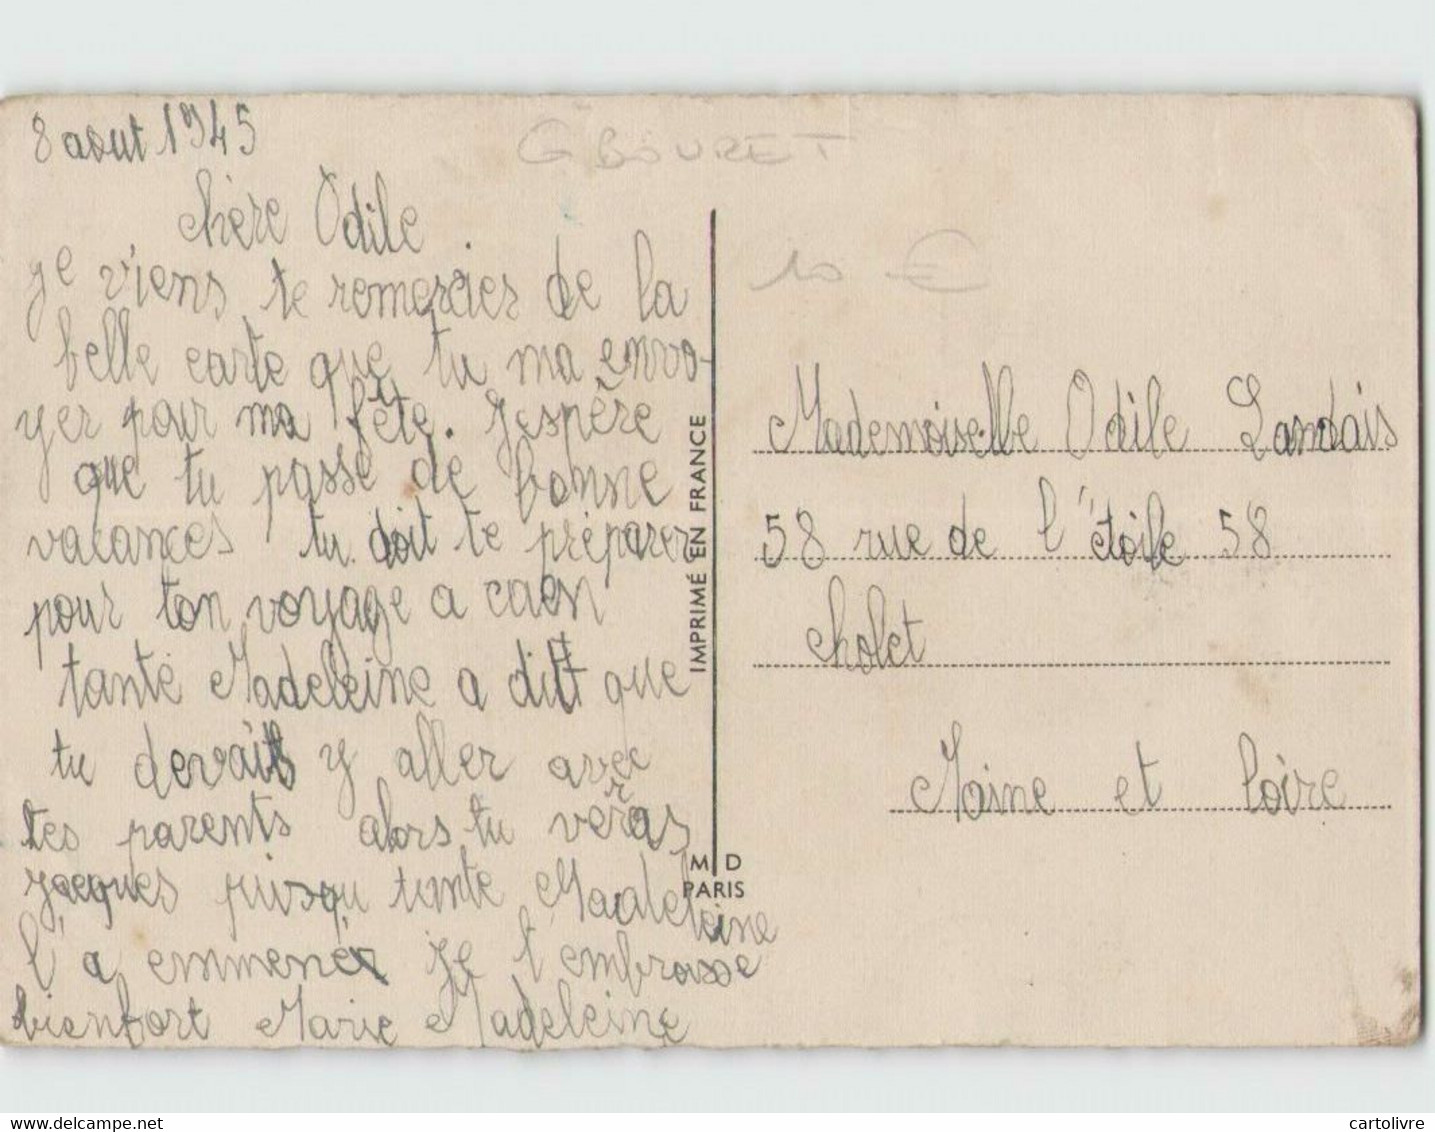 8 aout 1945
G BOURET
chère Odile
je viens te remercier de la
belle carte que tu ma envo-
yer pour ma fête. J'espère
que tu passe de bonne
vacances tu doit te préparer
pour ton voyage a caen
tante Madeleine a dit que
tu devait y aller avec
tes parents alors tu verras
jacques puisqu tante Madeleine
l'a emmener je t'embrasse
bienfort Marie Madeleine
10 €
IMPRIMÉ EN FRANCE
M D
PARIS
Mademoiselle Odile Landais
58 rue de l'étoile 58
cholet
Maine et loire
cartolivre